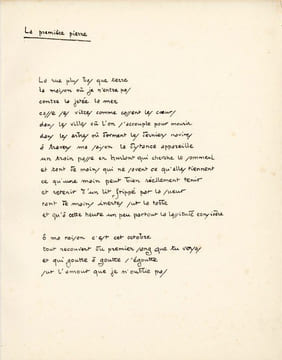 La première pierre
La rue plus bas que terre
la maison où je n'entre pas
contre la jetée la mer
casse ses vitres comme cessent les cœurs
dans les villes où l'on s'accouple pour mourir
dans les arbres où dorment les derniers navires
à travers ma saison la distance appareille
un train passe en hurlant qui cherche le sommeil
et tant de mains qui ne savent ce qu'elles tiennent
ce qu'une main peut bien réellement tenir
et retenir d'un lit frippé par la sueur
tant de mains inertes sur la table
et qu'à cette heure un peu partout la lassitude
ô ma raison c'est cet octobre
tout recouvert du premier sang que tu versas
et qui goutte à goutte s'égoutte
sur l'amour que je n'oublie pas